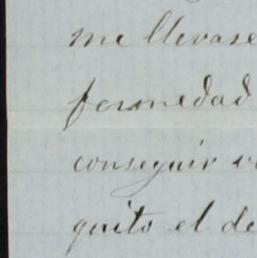 me llevase
fermedad
conseguir v
quito el de